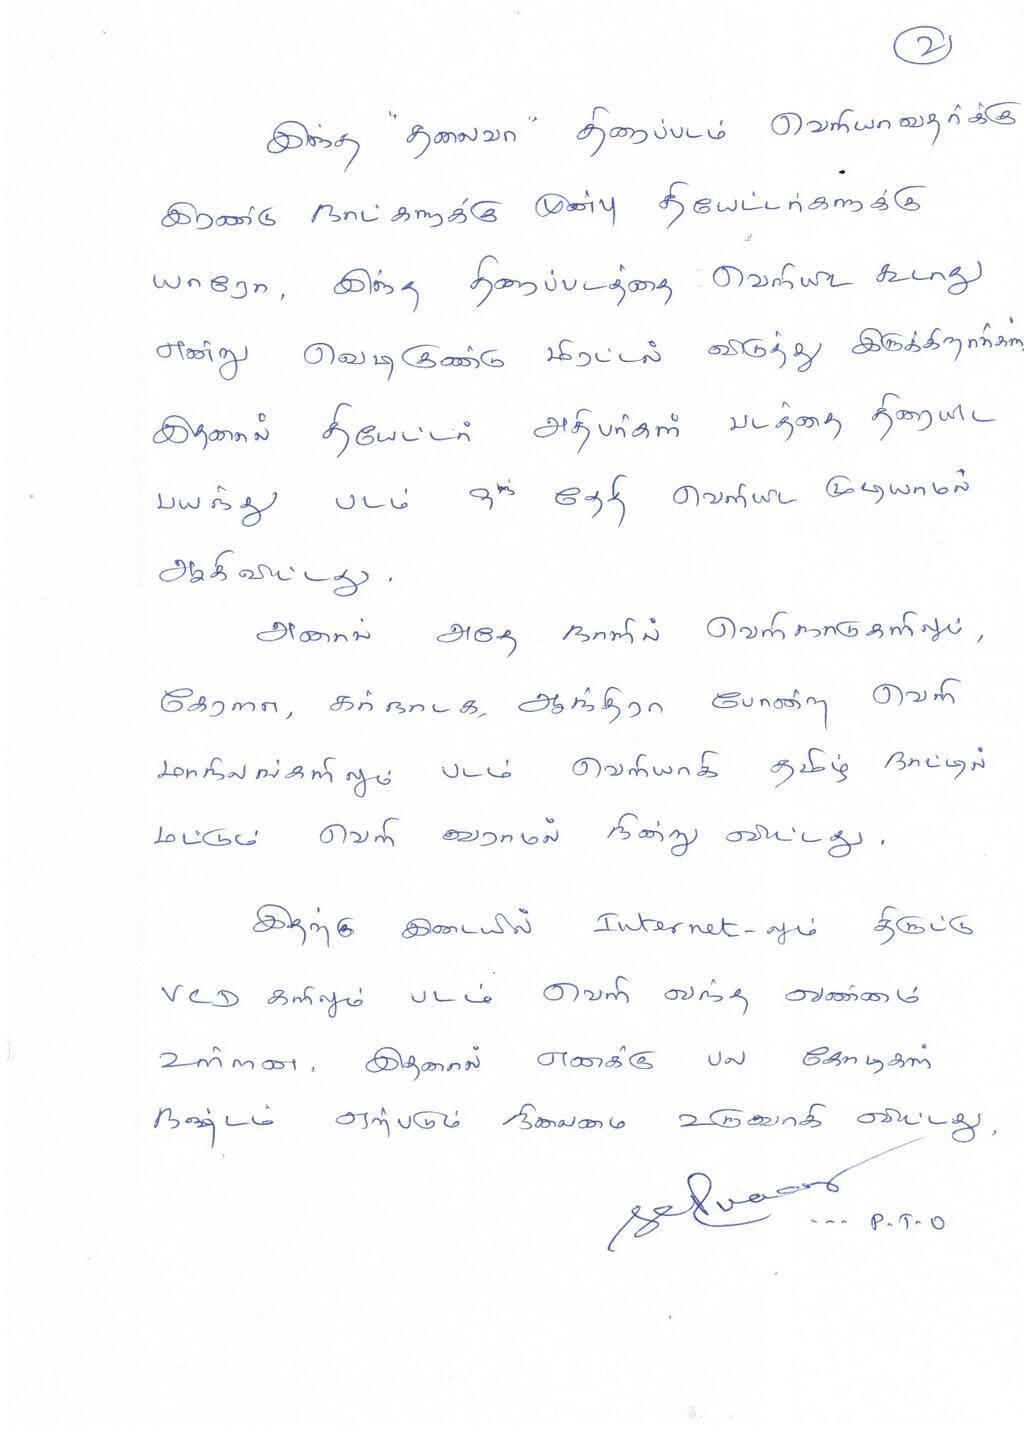 2
இந்த "தலைவா" திரைப்படம் வெளியாவதர்க்கு
இரண்டு நாட்களுக்கு முன்பு தியேட்டர்களுக்கு
யாரோ, இந்த திரைப்படத்தை வெளியிட கூடாது
என்று வெடிகுண்டு மிரட்டல் விடுத்து இருக்கிறார்கள்.
இதனால் தியேட்டர் அதிபர்கள் படத்தை திரையிட
பயந்து படம் 9ந் தேதி வெளியிட முடியாமல்
ஆகிவிட்டது.
அனால் அதே நாளில் வெளிநாடுகளிலும்,
கேரளை, கர்நாடக, ஆந்திரா போன்ற வெளி
மாநிலங்களிலும் படம் வெளியாகி தமிழ் நாட்டில்
மட்டும் வெளி வராமல் நின்று விட்டது.
இதற்கு இடையில் Internet-லும் திருட்டு
VCD களிலும் படம் வெளி வந்த வண்மம்
உள்ளன. இதனால் எனக்கு பல கோடிகள்
நஷ்டம் ஏர்படும் நிலைமை உருவாகி விட்டது.
--- P.T.O